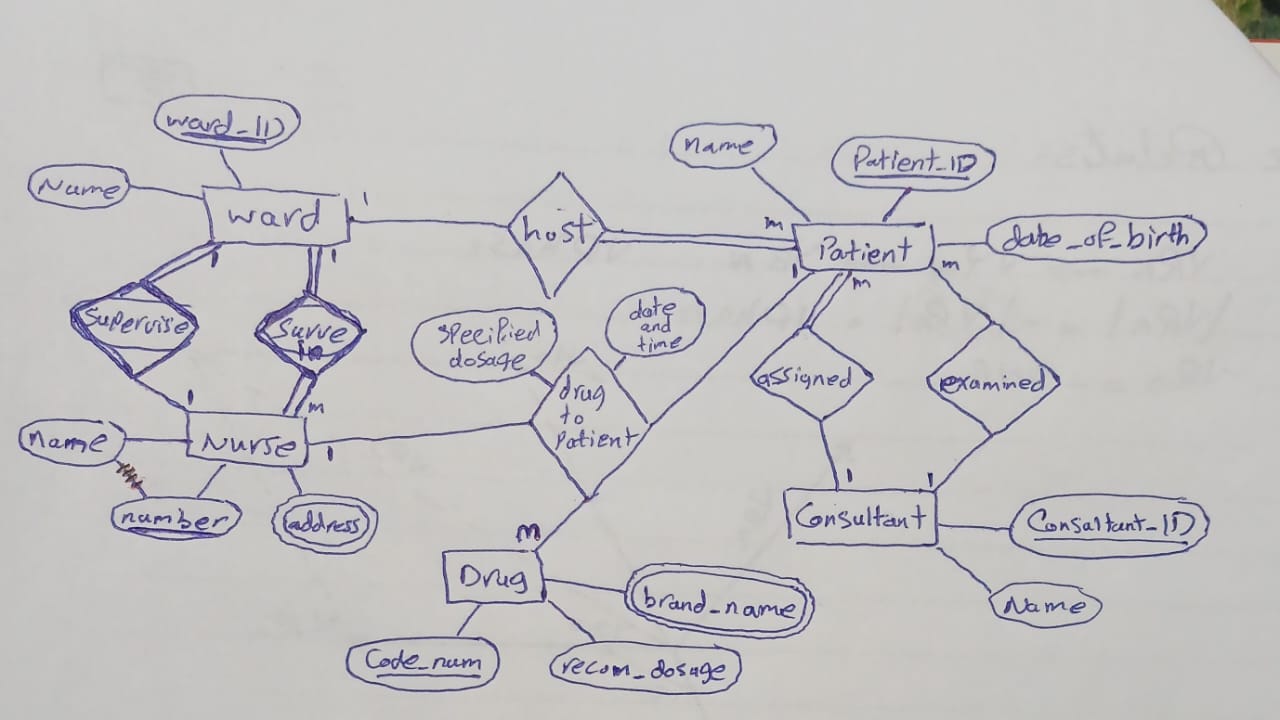 ward_ID
name
Patient_ID
Name
ward
1
host
m
Patient
date_of_birth
1
1
1
m
m
Supervise
Surve
in
specified
dosage
date
and
time
drug
to
Patient
assigned
examined
1
m
name
Nurse
1
number
address
m
1
1
Consultant
Consaltant_ID
Drug
brand_name
Name
Code_num
recom_dosage